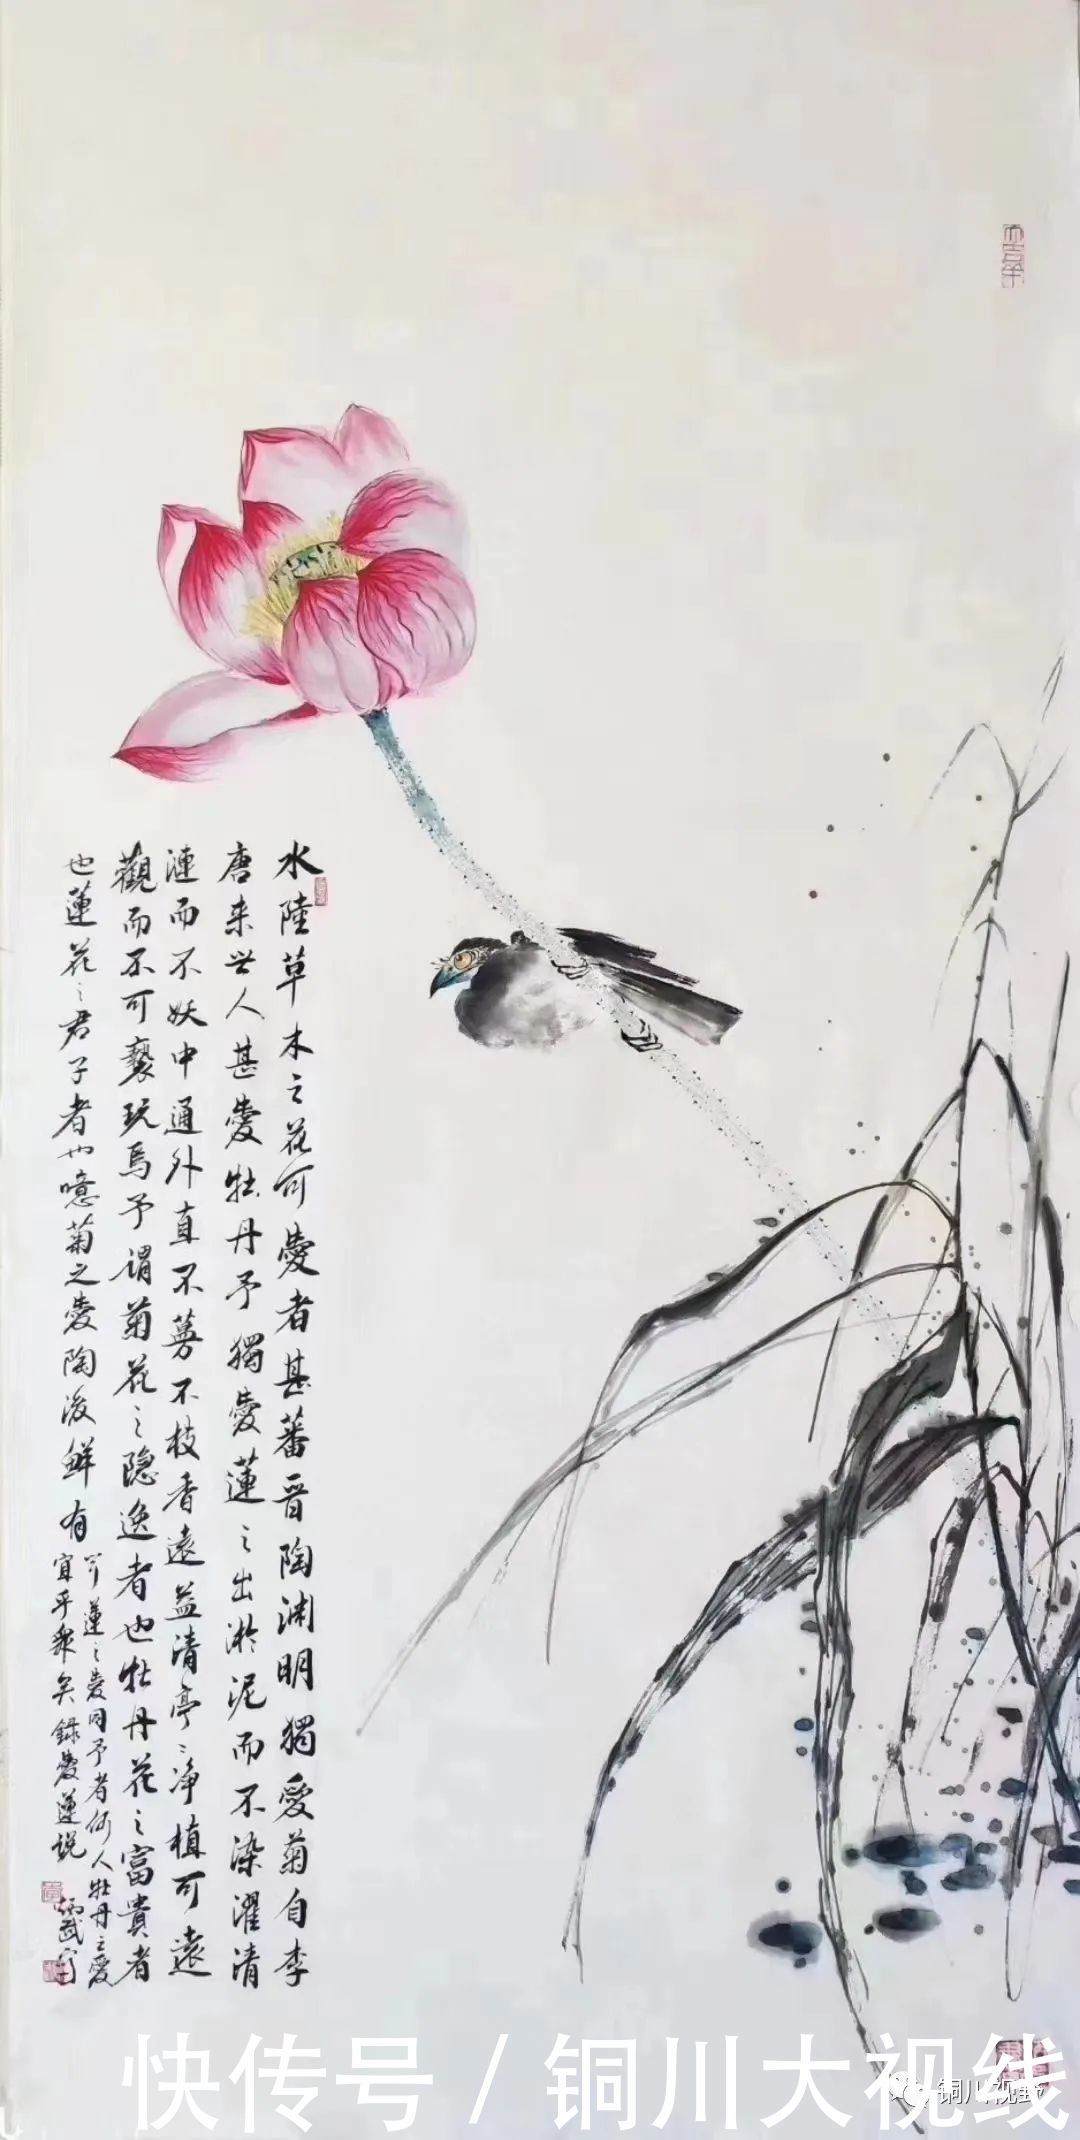 水陸草木之花可愛者甚蕃晋陶渊明獨愛菊自李
唐来世人甚愛牡丹予獨愛蓮之出淤泥而不染濯清
漣而不妖中通外直不蔓不枝香遠益清亭〻净植可遠
觀而不可褻玩焉予謂菊花之隐逸者也牡丹花之富貴者
也蓮花之君子者也噫菊之愛陶後鮮有
蓮之愛同予者何人牡丹之愛
宜乎衆矣錄愛蓮说
快传号/铜川大视线
铜川视野